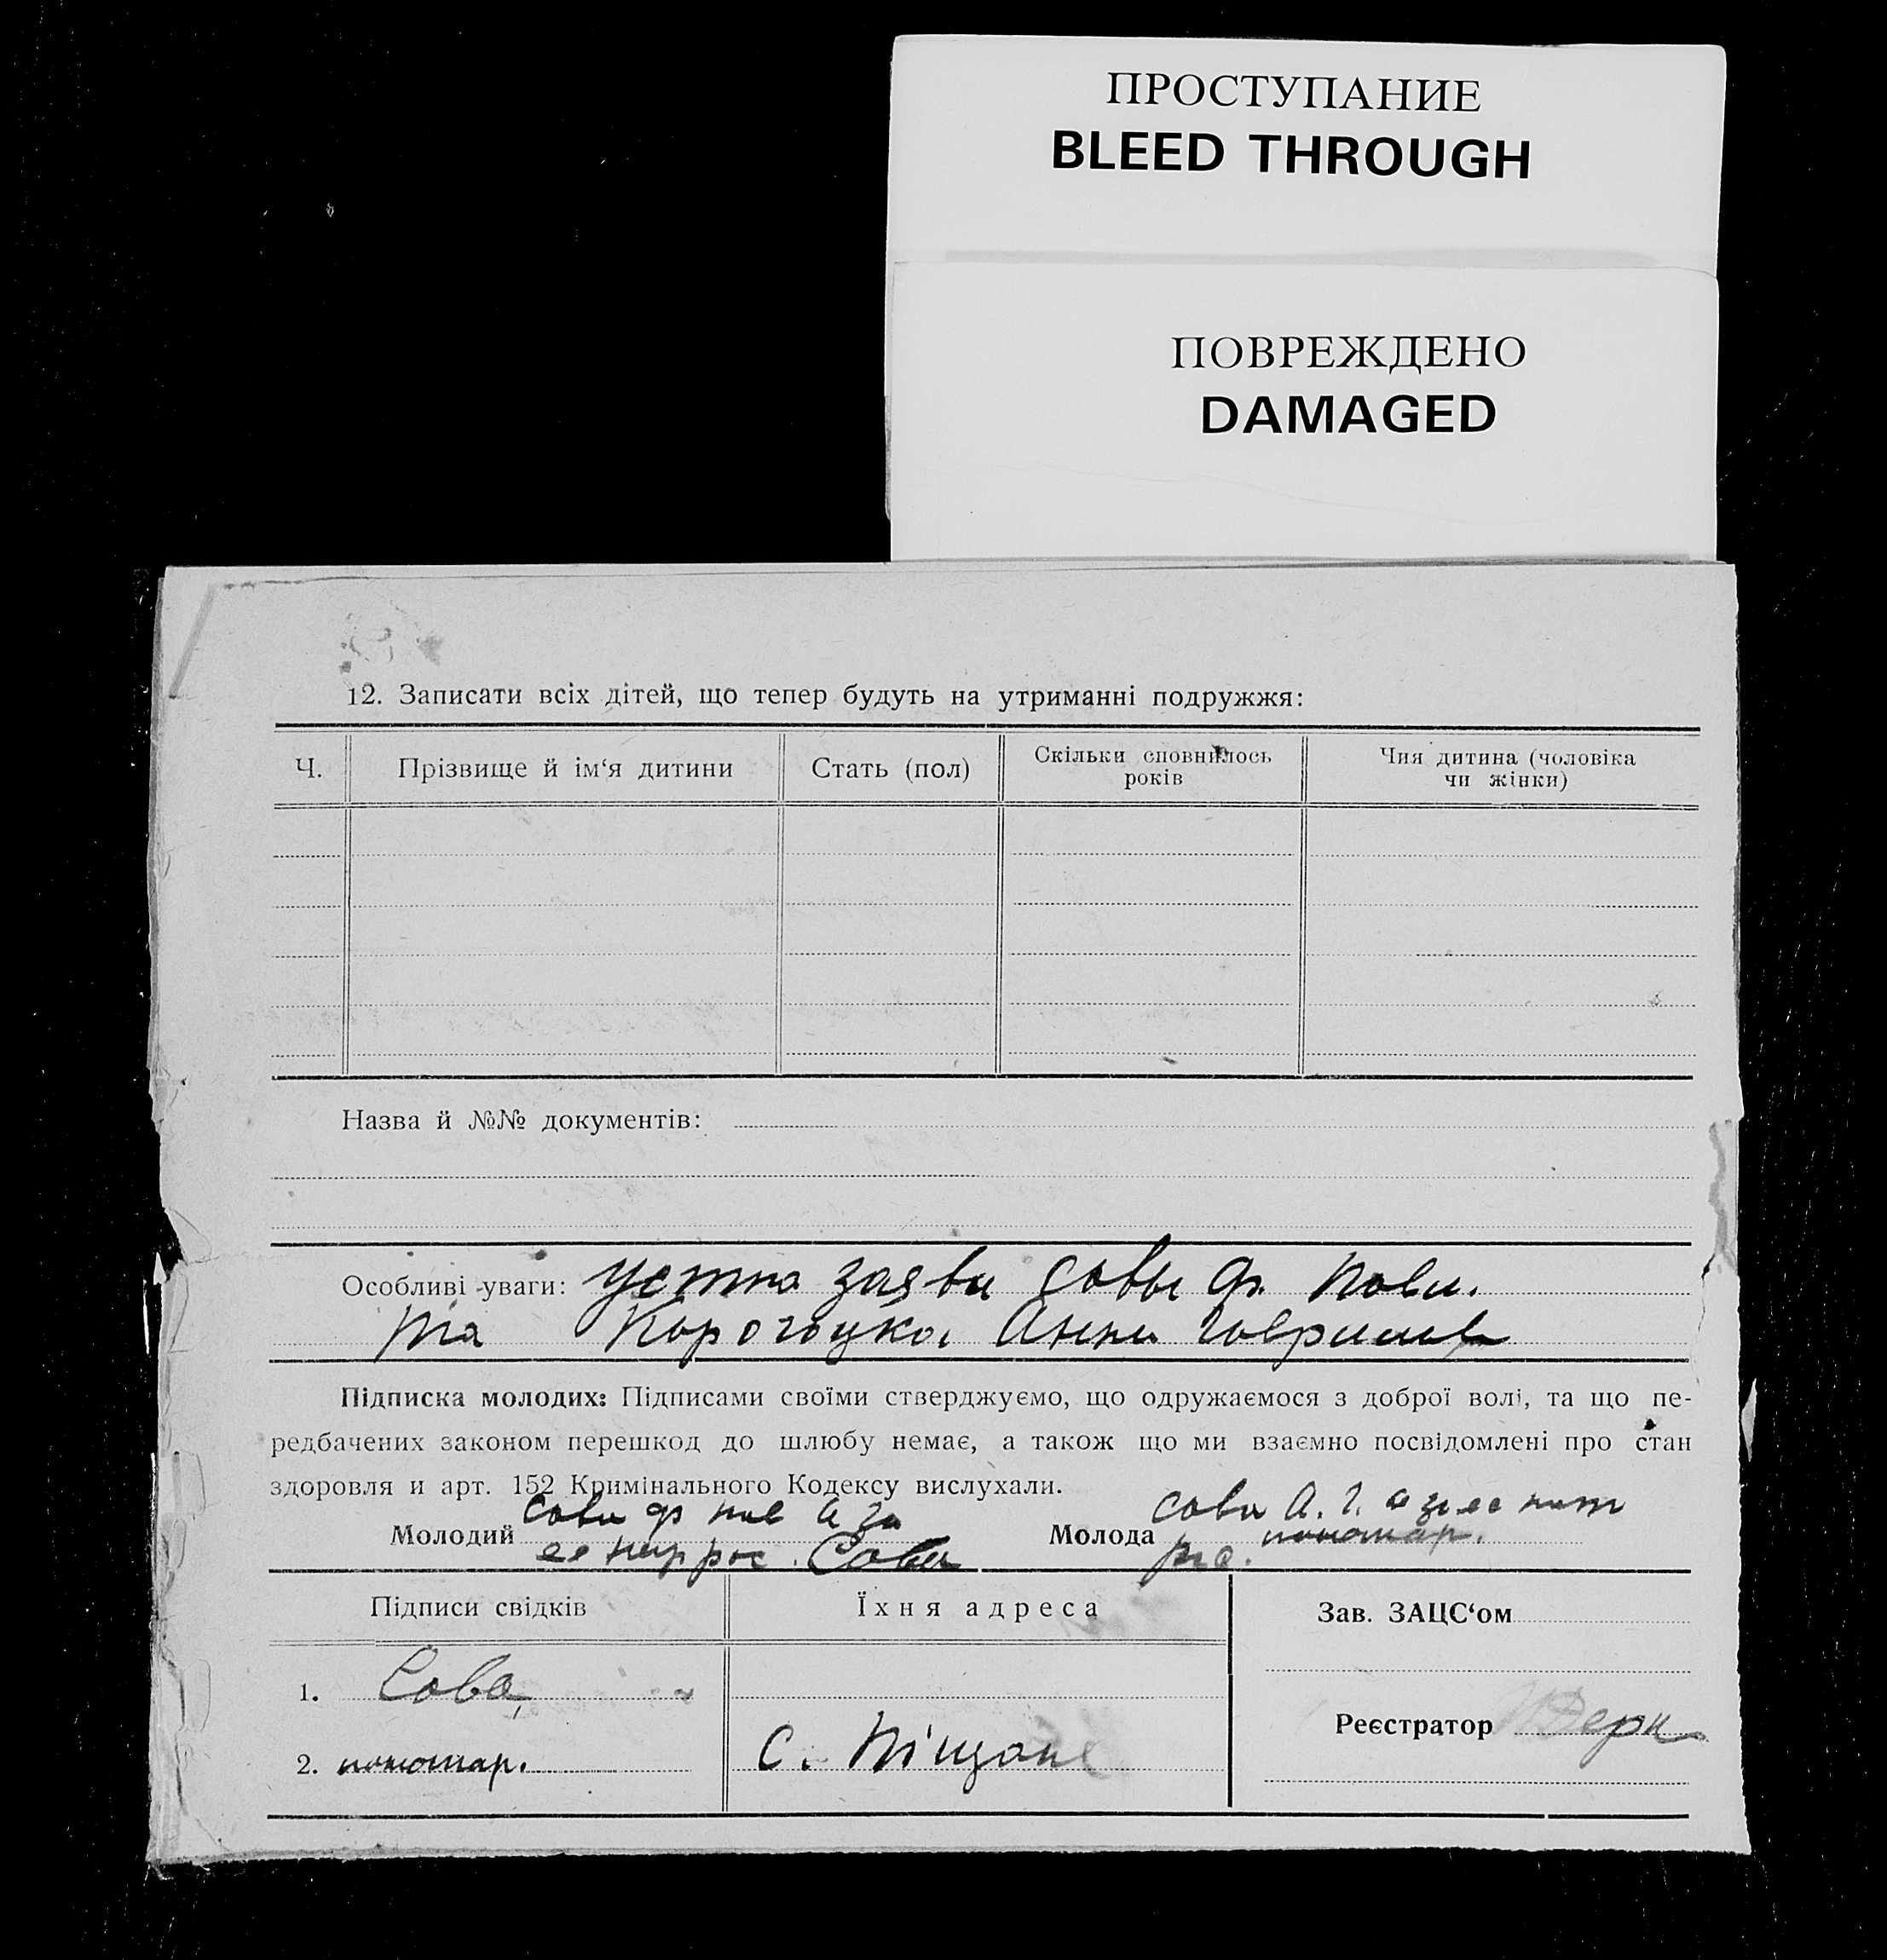 ПРОСТУПАНИЕ
BLEED THROUGH
ПОВРЕЖДЕНО
DAMAGED
12. Записати всіх дітей, що тепер будуть на утриманні подружжя:
Ч.
Прізвище й ім‘я дитини
Стать (пол)
Скільки сповнилось
років
Чия дитина (чоловіка
чи жінки)
Назва й №№ документів:
Особливі уваги: Устна заява Совы Ф. Пави.
та Анни
Підписка молодих: Підписами своїми стверджуємо, що одружаємося з доброї волі, та що пе-
редбачених законом перешкод до шлюбу немає, а також що ми взаємно посвідомлені про стан
здоровля и арт. 152 Кримінального Кодексу вислухали.
Молодий Сова ф пав а за
Сова
Молода Сова А. Г. а за
Підписи свідків
Їхня адреса
Зав. ЗАЦС‘ом
1. Сова,
Реєстратор
2. пономар. с. Піщане